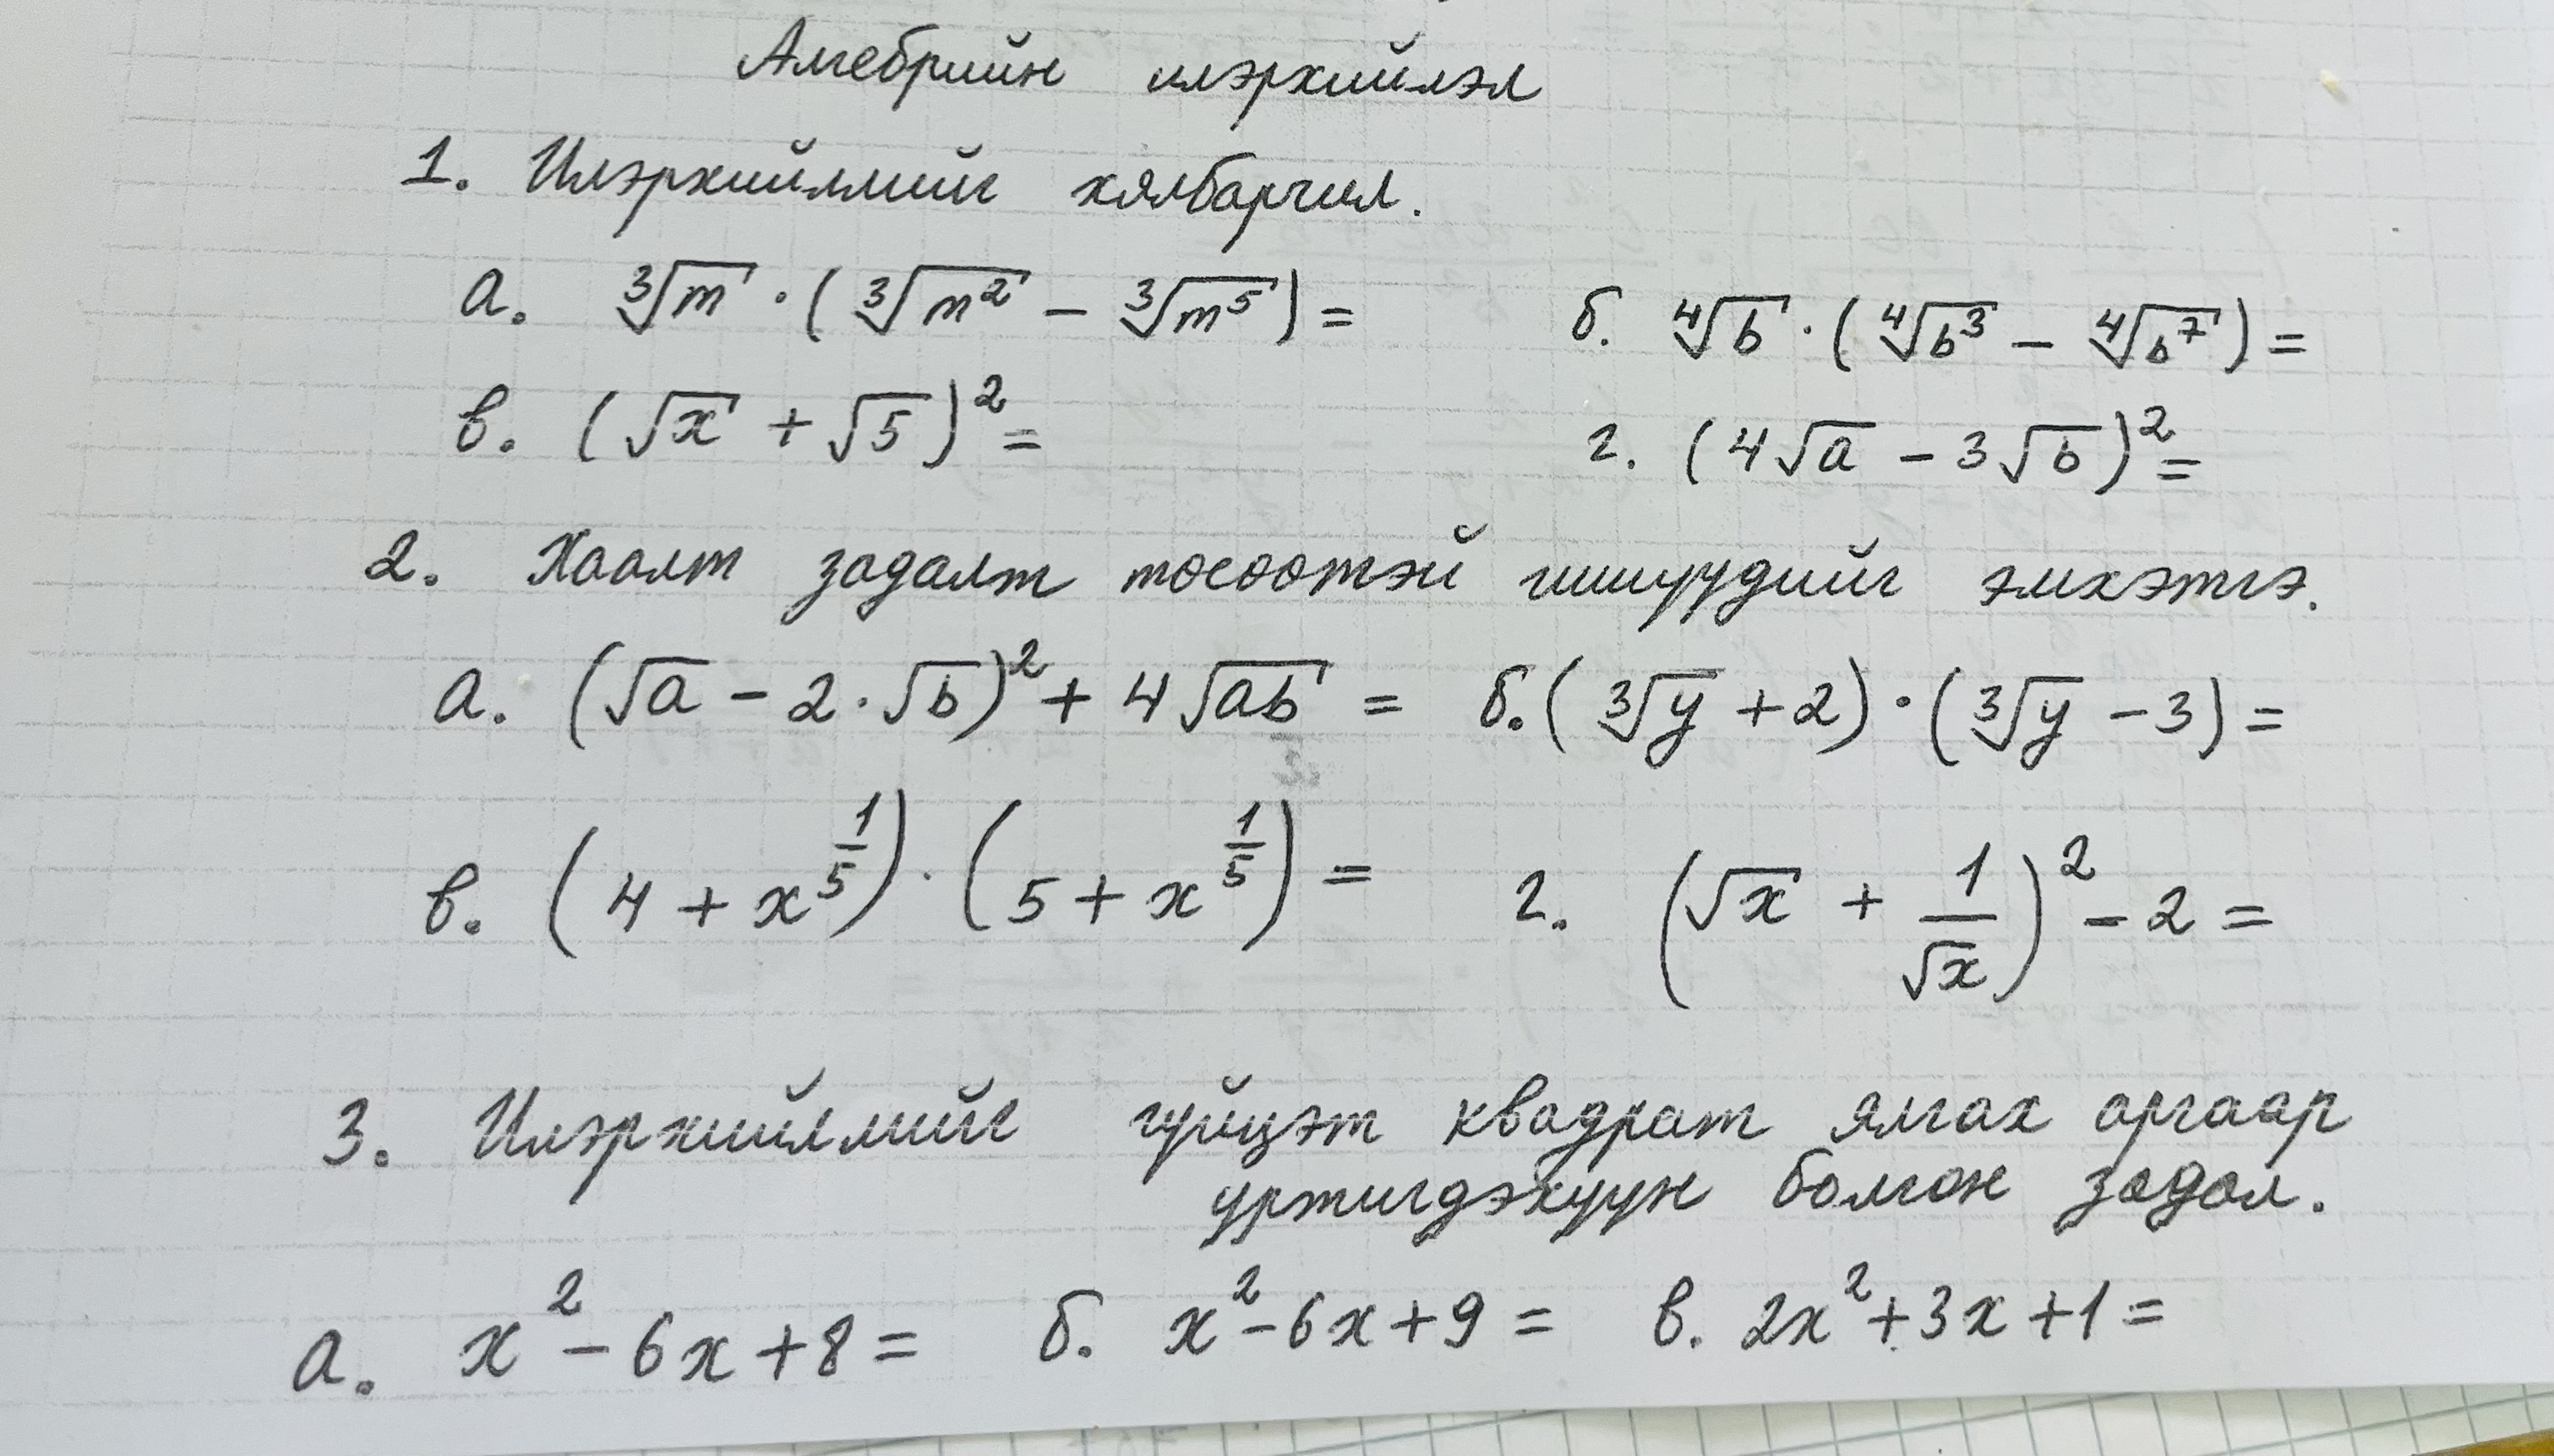 Алгебрийн илэрхийлэл
1. Илэрхийллийг хялбарчил.
а. ∛m · (∛m² − ∛m⁵) = б. ∜b · (∜b³ − ∜b⁷) =
в. (√x + √5)² = г. (4√a − 3√b)² =
2. Хаалт задалт төсөөтэй гишүүдийг эмхэтгэ.
а. (√a − 2·√b)² + 4√ab = б. (∛y + 2) · (∛y − 3) =
в. (4 + x^(1/5)) · (5 + x^(1/5)) = г. (√x + 1/√x)² − 2 =
3. Илэрхийллийг гүйцэт квадрат ялгах аргаар
үржигдэхүүн болгон задал.
а. x² − 6x + 8 = б. x² − 6x + 9 = в. 2x² + 3x + 1 =